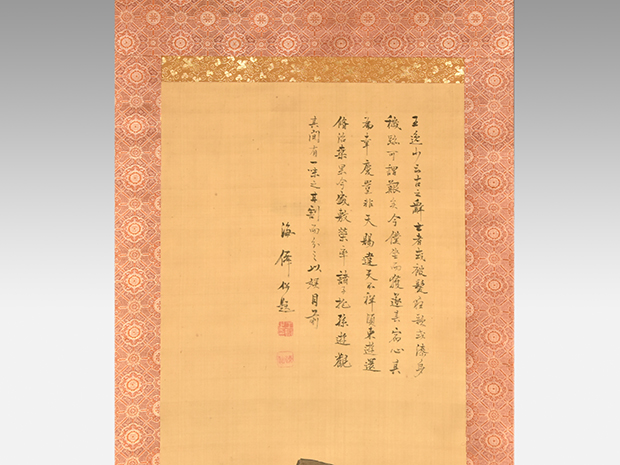 王逸少云古之辭世者或被髮狂歌或汚身
穢跡可謂艱矣今僕坐而獲遂其宿心其
為幸慶豈非天賜違天不祥頃東遊還
修治桑果今盛敷榮率諸子抱孫遊觀
其間有一味之甘割而分之以娛目前
海僊併題